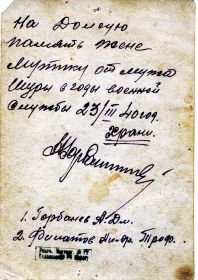 На Долгую
память жене
от мужа
Шуры в годы военной
службы 23/III 40 год.
Храни.
1. Горбачев А. Дм.
2. Филатов Троф.